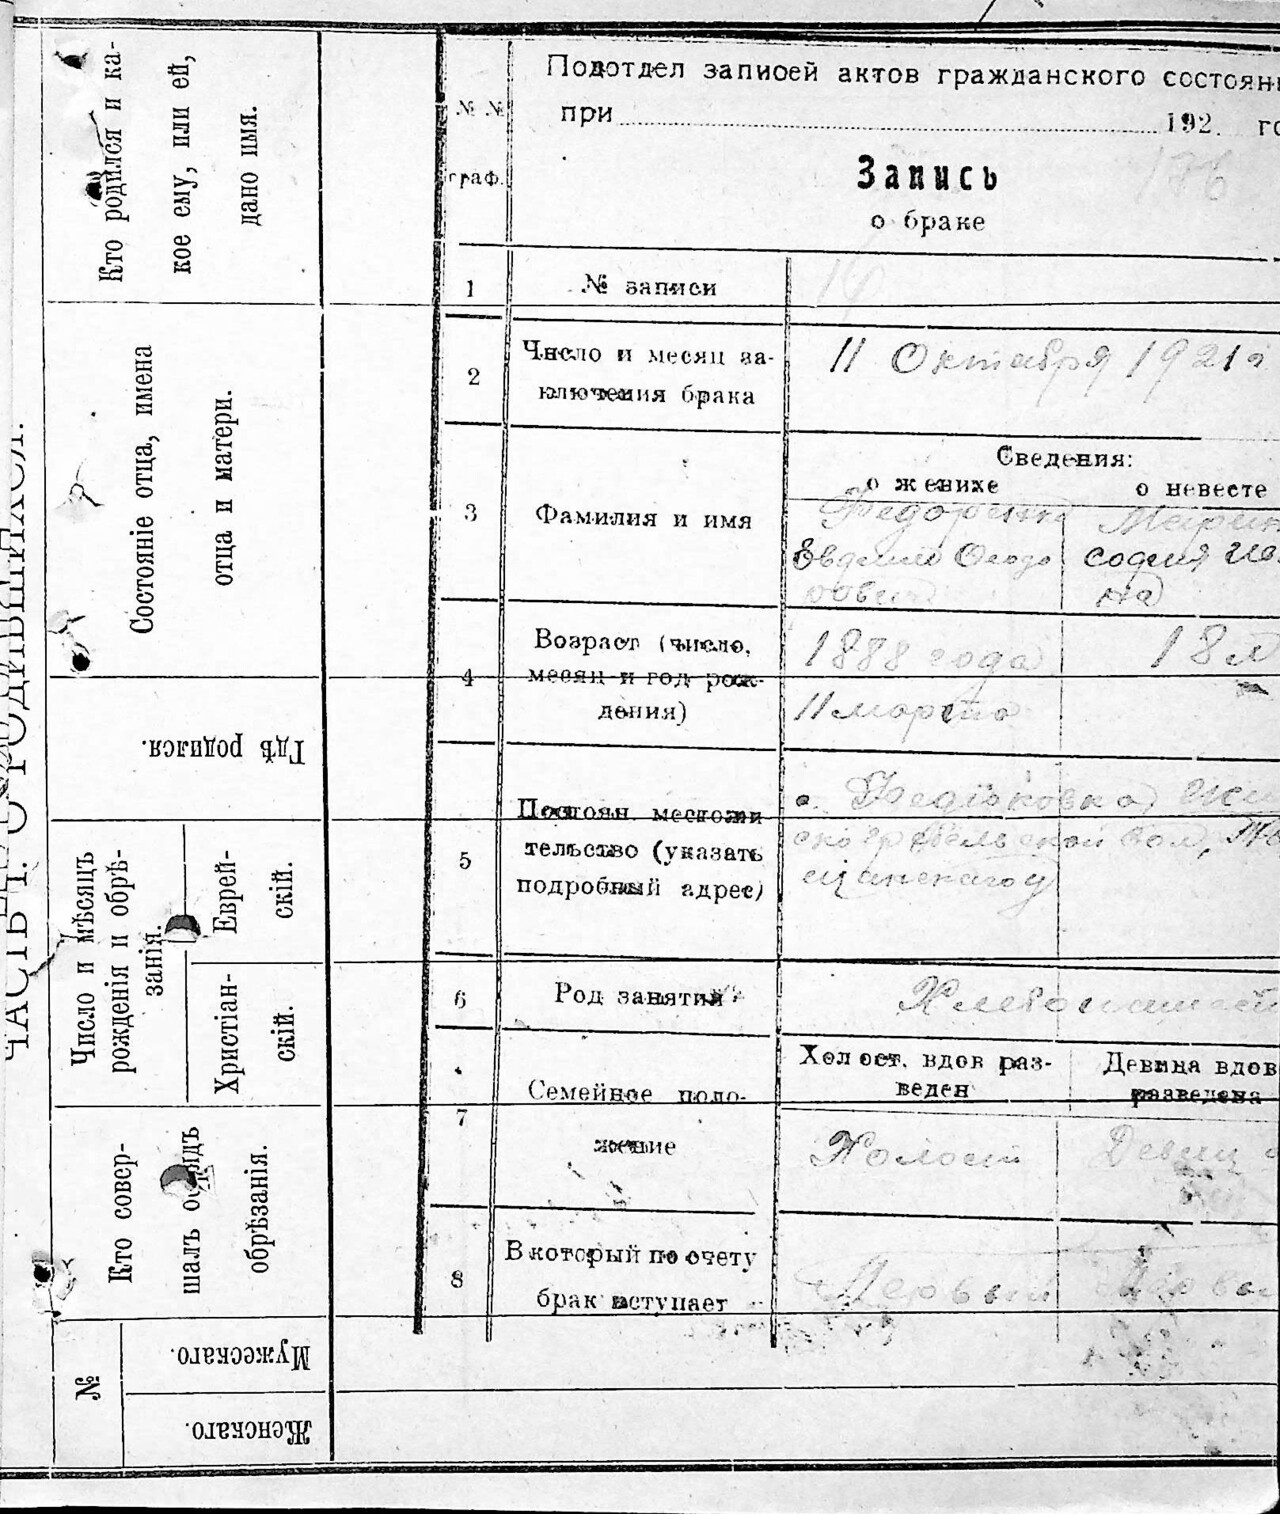 ЧАСТЬ I. О РОДИВШИХСЯ.
Кто родился и ка-
кое ему, или ей,
дано имя.
Состояніе отца, имена
отца и матери.
Гдѣ родился.
Число и мѣсяцъ
рожденія и обрѣ-
занія.
Еврей-
скій.
Христіан-
скій.
Кто совер-
шалъ обрядъ
обрѣзанія.
№
Мужескаго.
Женскаго.
№ №
граф.
Подотдел записей актов гражданского состоян
при 192 го
Запись
о браке
1 № записи
2 Число и месяц за-
ключения брака
11 Октября 1921 г
Сведения:
о женихе о невесте
3 Фамилия и имя
Федоренко Марин
София
на
4 Возраст (число,
месяц и год рож-
дения)
1888 года 18 л
11 марта
5 Постоян. местожи
тельство (указать
подробный адрес)
вол,
6 Род занятий
Хлебопашест
7 Семейное поло-
жение
Холост. вдов раз-
веден
Девица вдов
разведена
Холост Девиц
8 В который по счету
брак вступает
Первый